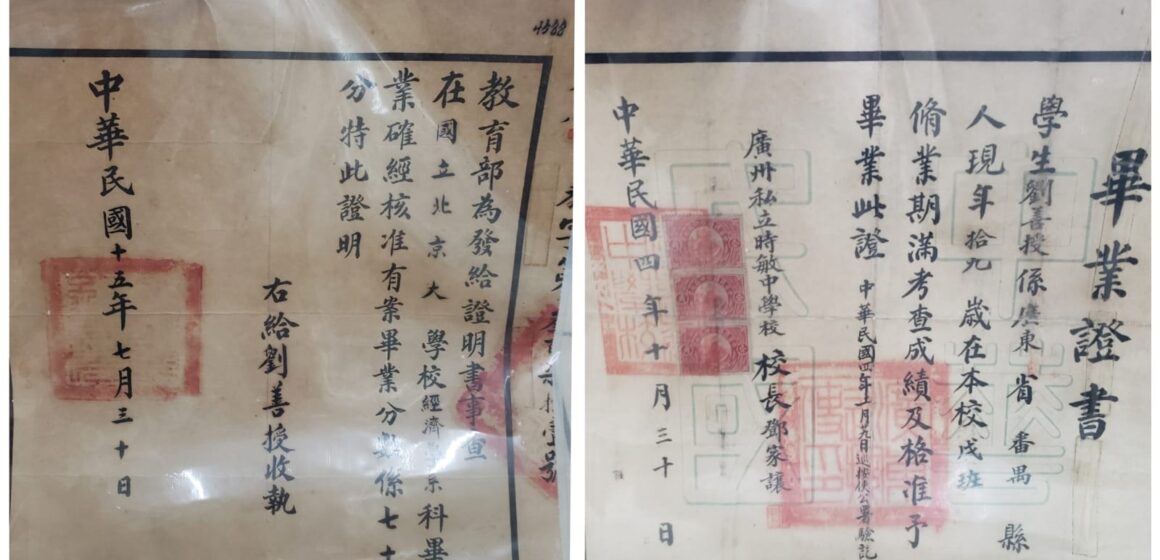 4588
教育部為發給證明書事查
在國立北京大學校經濟
科畢
業確經核准有案畢業分數係七十
分特此證明
右給劉善授收執
中華民國十五年七月三十日
畢業證書
學生劉善授係廣東省番禺縣
人現年拾九歲在本校戊班
脩業期滿考查成績及格准予
畢業此證
中華民國四年
月九日巡按使公署驗訖
廣州私立時敏中學校校長鄧家讓
中華民國四年十月三十日